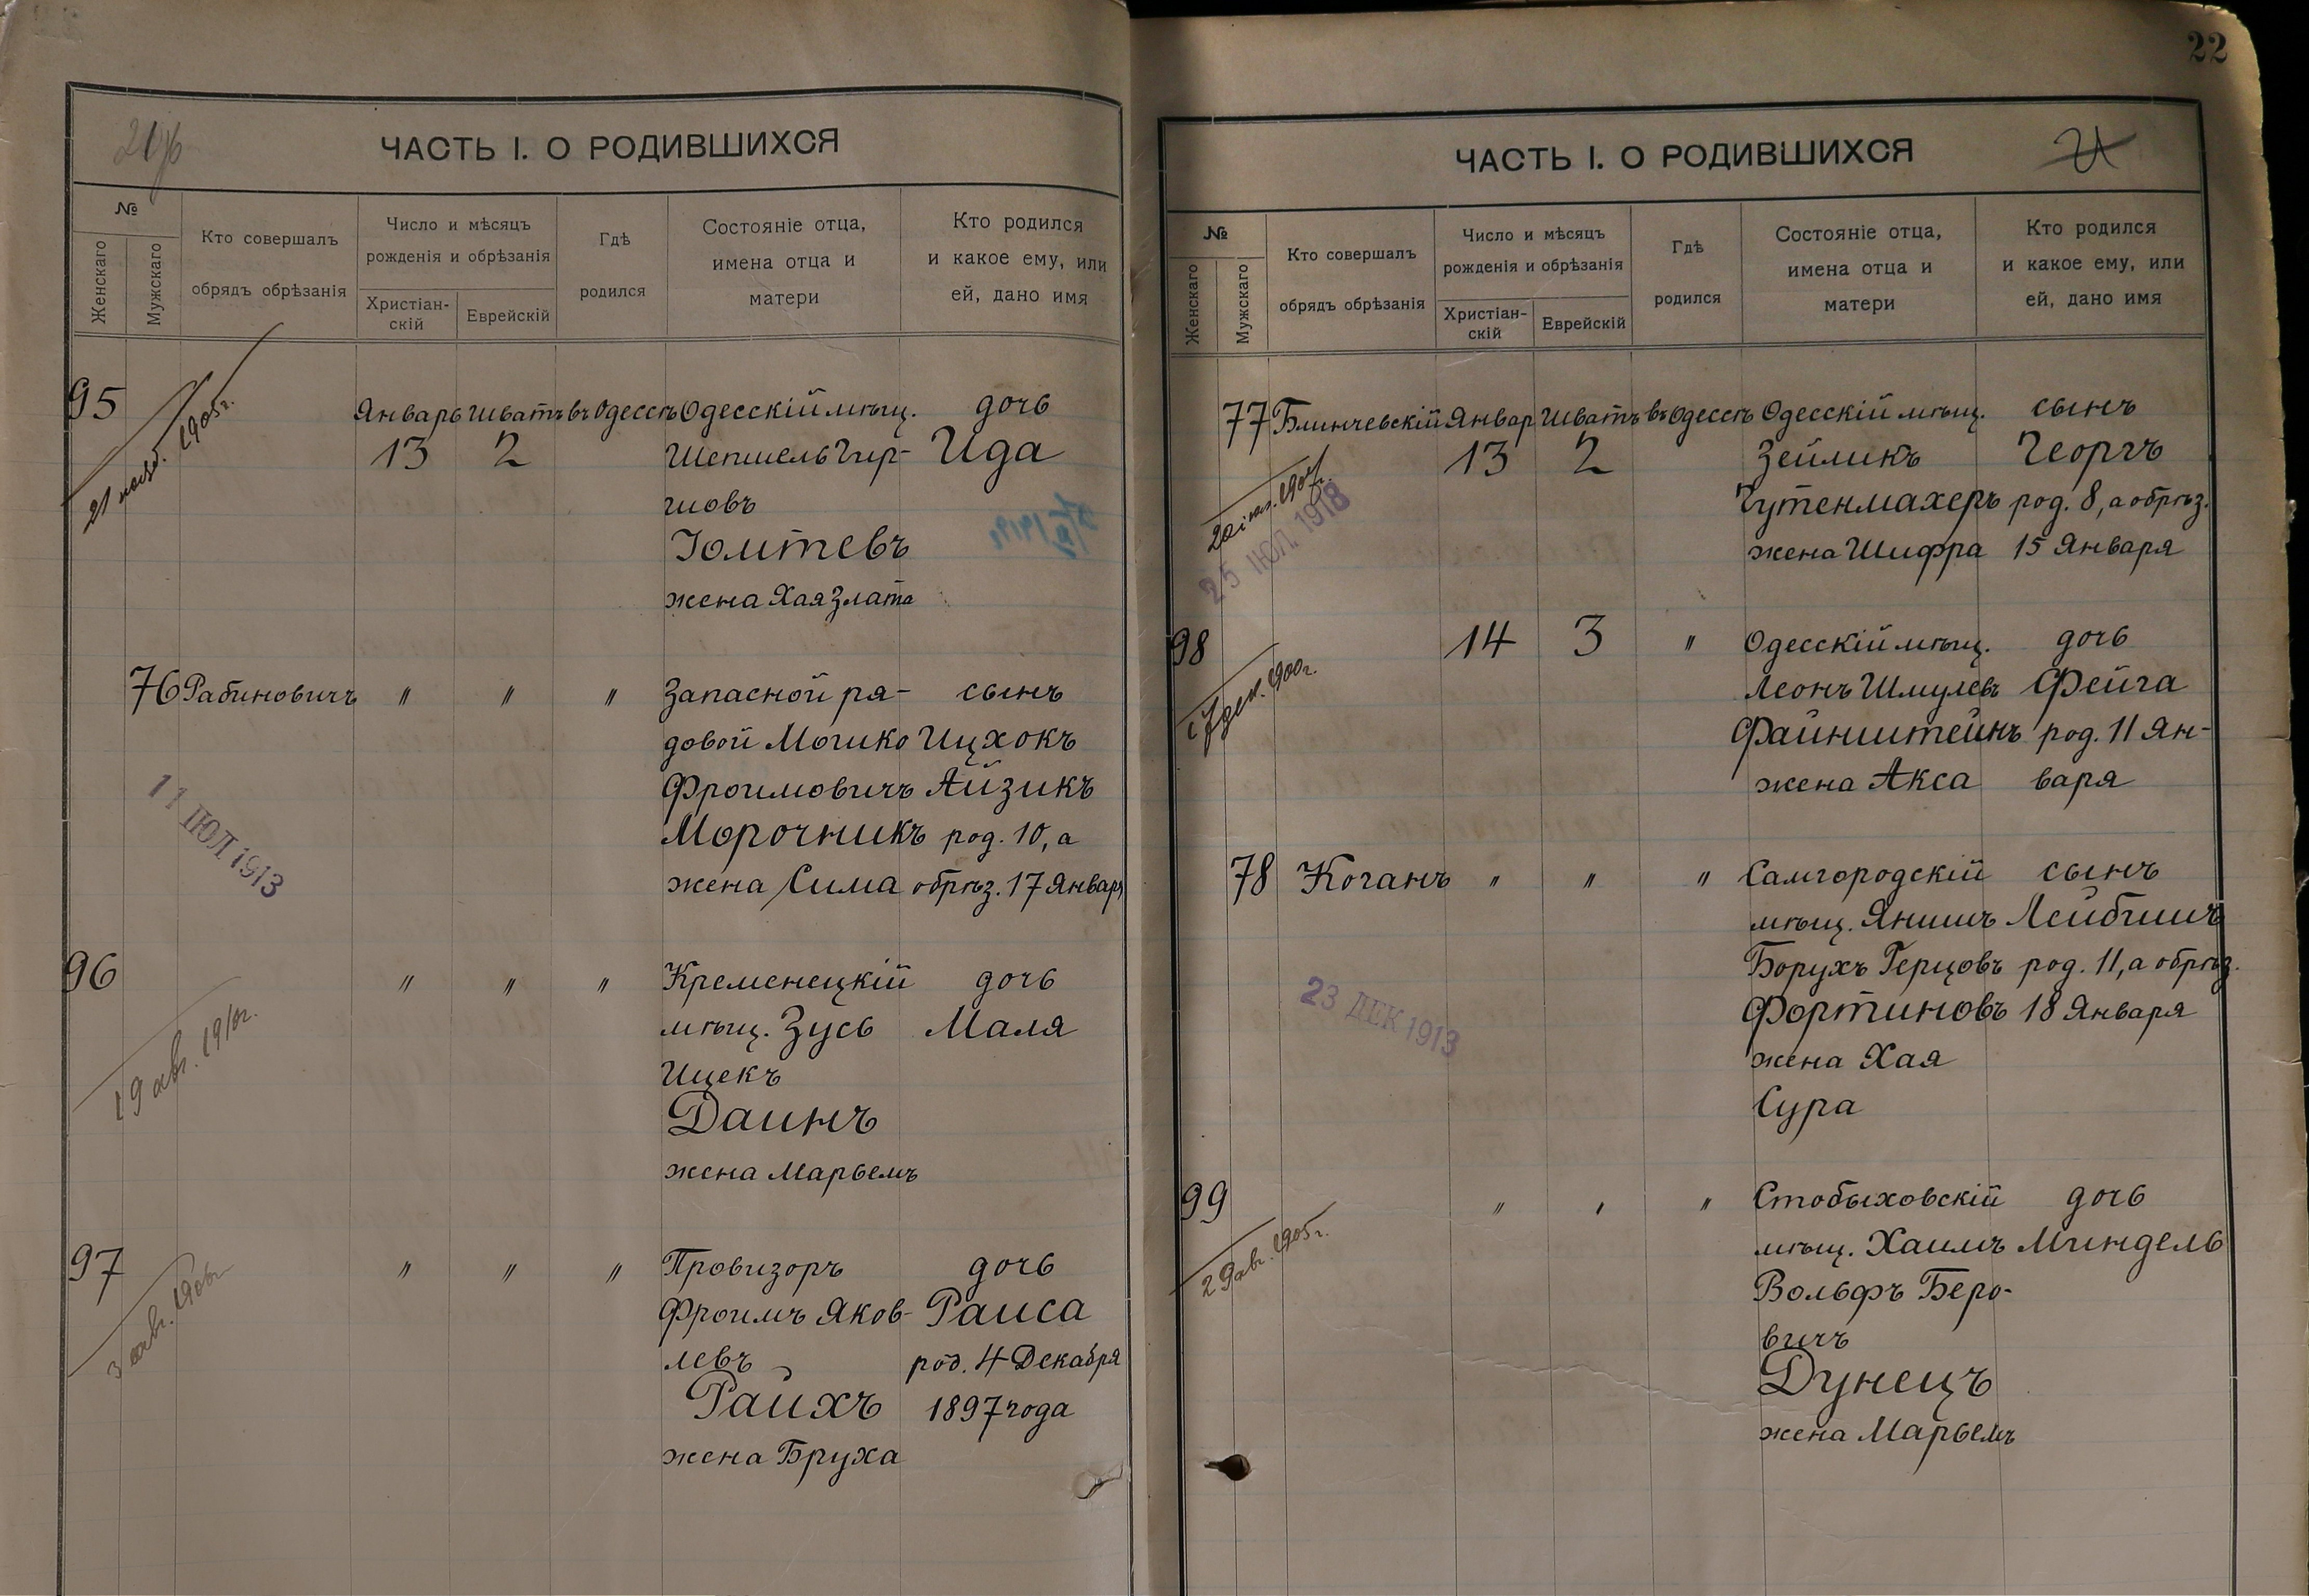 ЧАСТЬ I. О РОДИВШИХСЯ
№
Женскаго
Мужскаго
Кто совершалъ
обрядъ обрѣзанія
Число и мѣсяцъ
рожденія и обрѣзанія
Христіан-
скій
Еврейскій
Гдѣ
родился
Состояніе отца,
имена отца и
матери
Кто родился
и какое ему, или
ей, дано имя
95 Январь Шватъ въ Одессѣ Одесскій мѣщ. дочь
13 2 Шепшель Гир- Ида
шовъ
Іомтевъ
жена Хая Злата
1905г.
76 Рабиновичъ " " " Запасной ря- сынъ
довой Мошко Ицхокъ
Фроимовичъ Айзикъ
Морочникъ род. 10, а
жена Сима обрѣз. 17 Января
11 ІЮЛ 1913
96 " " " Кременецкій дочь
мѣщ. Зусь Маля
Ицекъ
Даинъ
жена Марьемъ
19 авг. 1910г.
97 " " " Провизоръ дочь
Фроимъ Яков- Раиса
левъ род. 4 Декабря
Райхъ 1897 года
жена Бруха
22
ЧАСТЬ I. О РОДИВШИХСЯ
№
Женскаго
Мужскаго
Кто совершалъ
обрядъ обрѣзанія
Число и мѣсяцъ
рожденія и обрѣзанія
Христіан-
скій
Еврейскій
Гдѣ
родился
Состояніе отца,
имена отца и
матери
Кто родился
и какое ему, или
ей, дано имя
77 Блинчевскій Январ Шватъ въ Одессѣ Одесскій мѣщ. сынъ
13 2 Зейликъ Георгъ
Гутенмахеръ род. 8, а обрѣз.
жена Шифра 15 Января
25 ІЮЛ 1918
98 14 3 " Одесскій мѣщ. дочь
Леонъ Шмулевъ Фейга
Файнштейнъ род. 11 Ян-
жена Акса варя
17 дек. 1900г.
78 Коганъ " " " Самгородскій сынъ
мѣщ. Янишъ Лейбишъ
Борухъ Герцовъ род. 11, а обрѣз.
Фортиновъ 18 Января
жена Хая
Сура
23 ДЕК 1913
99 " " " Стобыховскій дочь
мѣщ. Хаимъ Миндель
Вольфъ Беро-
вичъ
Дунецъ
жена Марьемъ
29 авг. 1905г.